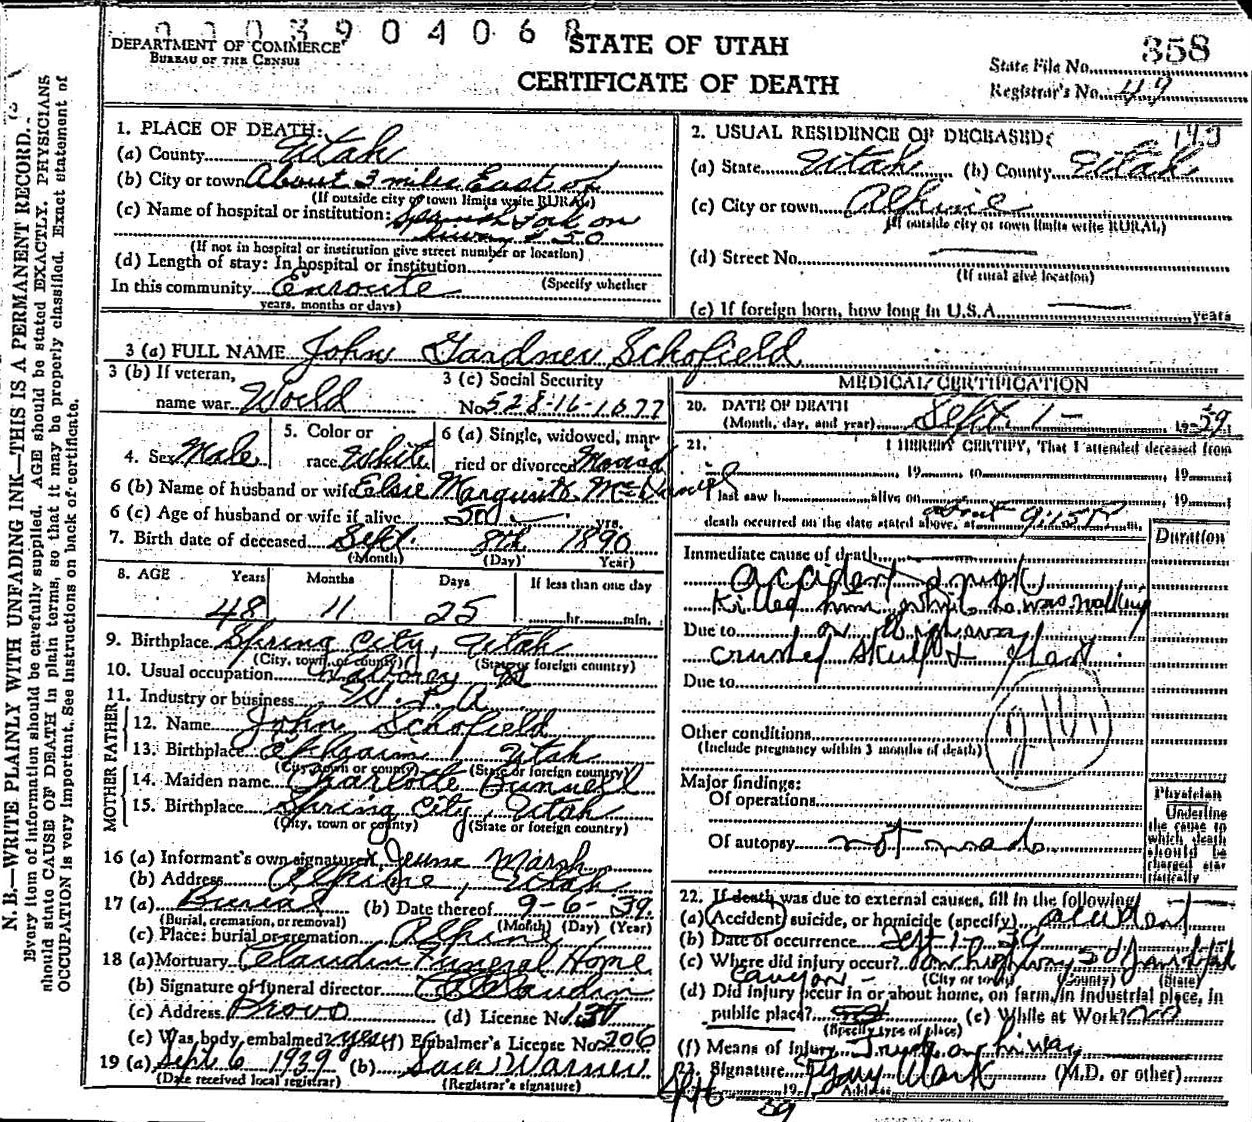 0003904068
DEPARTMENT OF COMMERCE
BUREAU OF THE CENSUS
STATE OF UTAH
CERTIFICATE OF DEATH
358
State File No.
Registrar's No. 49
N. B.—WRITE PLAINLY WITH UNFADING INK—THIS IS A PERMANENT RECORD.
Every item of information should be carefully supplied. AGE should be stated EXACTLY. PHYSICIANS
should state CAUSE OF DEATH in plain terms, so that it may be properly classified. Exact statement of
OCCUPATION is very important. See instructions on back of certificate.
1. PLACE OF DEATH:
(a) County Utah
(b) City or town About 3 miles East of
(If outside city or town limits write RURAL)
(c) Name of hospital or institution: Spanish Fork on
Hiway # 50
(If not in hospital or institution give street number or location)
(d) Length of stay: In hospital or institution
In this community Enroute (Specify whether
years, months or days)
2. USUAL RESIDENCE OF DECEASED: 193
(a) State Utah (b) County Utah
(c) City or town Alpine
(If outside city or town limits write RURAL)
(d) Street No.
(If rural give location)
(e) If foreign born, how long in U.S.A. years
3 (a) FULL NAME John Gardner Schofield
3 (b) If veteran,
name war World
3 (c) Social Security
No. 528-16-1877
4. Sex Male
5. Color or
race White
6 (a) Single, widowed, mar-
ried or divorced Married
6 (b) Name of husband or wife Elsie Marguite McDaniel
6 (c) Age of husband or wife if alive yrs.
7. Birth date of deceased Sept. 8th 1890
(Month) (Day) (Year)
8. AGE Years Months Days If less than one day
48 11 25 hr. min.
9. Birthplace Spring City, Utah
(City, town, or county) (State or foreign country)
10. Usual occupation
11. Industry or business W. P. A
FATHER
12. Name John Schofield
13. Birthplace Ephraim Utah
(City, town or county) (State or foreign country)
MOTHER
14. Maiden name Charlotte Bunnell
15. Birthplace Spring City, Utah
(City, town or county) (State or foreign country)
16 (a) Informant's own signature Marsh
(b) Address Alpine, Utah
17 (a) Burial (b) Date thereof 9-6-39
(Burial, cremation, or removal) (Month) (Day) (Year)
(c) Place: burial or cremation Alpine
18 (a) Mortuary Claudin Funeral Home
(b) Signature of funeral director Claudin
(c) Address Provo (d) License No. 137
(e) Was body embalmed? yes (f) Embalmer's License No. 206
19 (a) Sept 6 1939 (b) Sara Warner
(Date received local registrar) (Registrar's signature)
MEDICAL CERTIFICATION
20. DATE OF DEATH
(Month, day, and year) Sept 1 - 1939
21. I HEREBY CERTIFY, That I attended deceased from
, 19 to , 19
I last saw h alive on , 19
death occurred on the date stated above, at about 9:15 P m.
Duration
Immediate cause of death
accident truck
killed him while he was walking
Due to on highway
crushed skull & chest
Due to
Other conditions
(Include pregnancy within 3 months of death)
Major findings:
Of operations
Of autopsy not made
Physician
Underline the cause to which death should be charged statistically
22. If death was due to external causes, fill in the following
(a) Accident, suicide, or homicide (specify) accident
(b) Date of occurrence Sept 1 - 39
(c) Where did injury occur? on highway 50
canyon - (City or town) (County) (State)
(d) Did injury occur in or about home, on farm, in industrial place, in
public place? (e) While at Work? no
(Specify type of place)
(f) Means of Injury Truck on hiway
23. Signature (M.D. or other)
19 Address